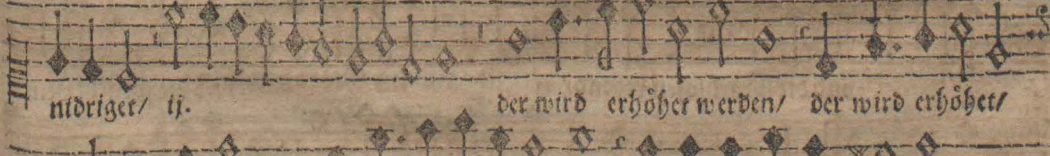 nidriget/ ij. der wird erhöhet werden/ der wird erhöhet/